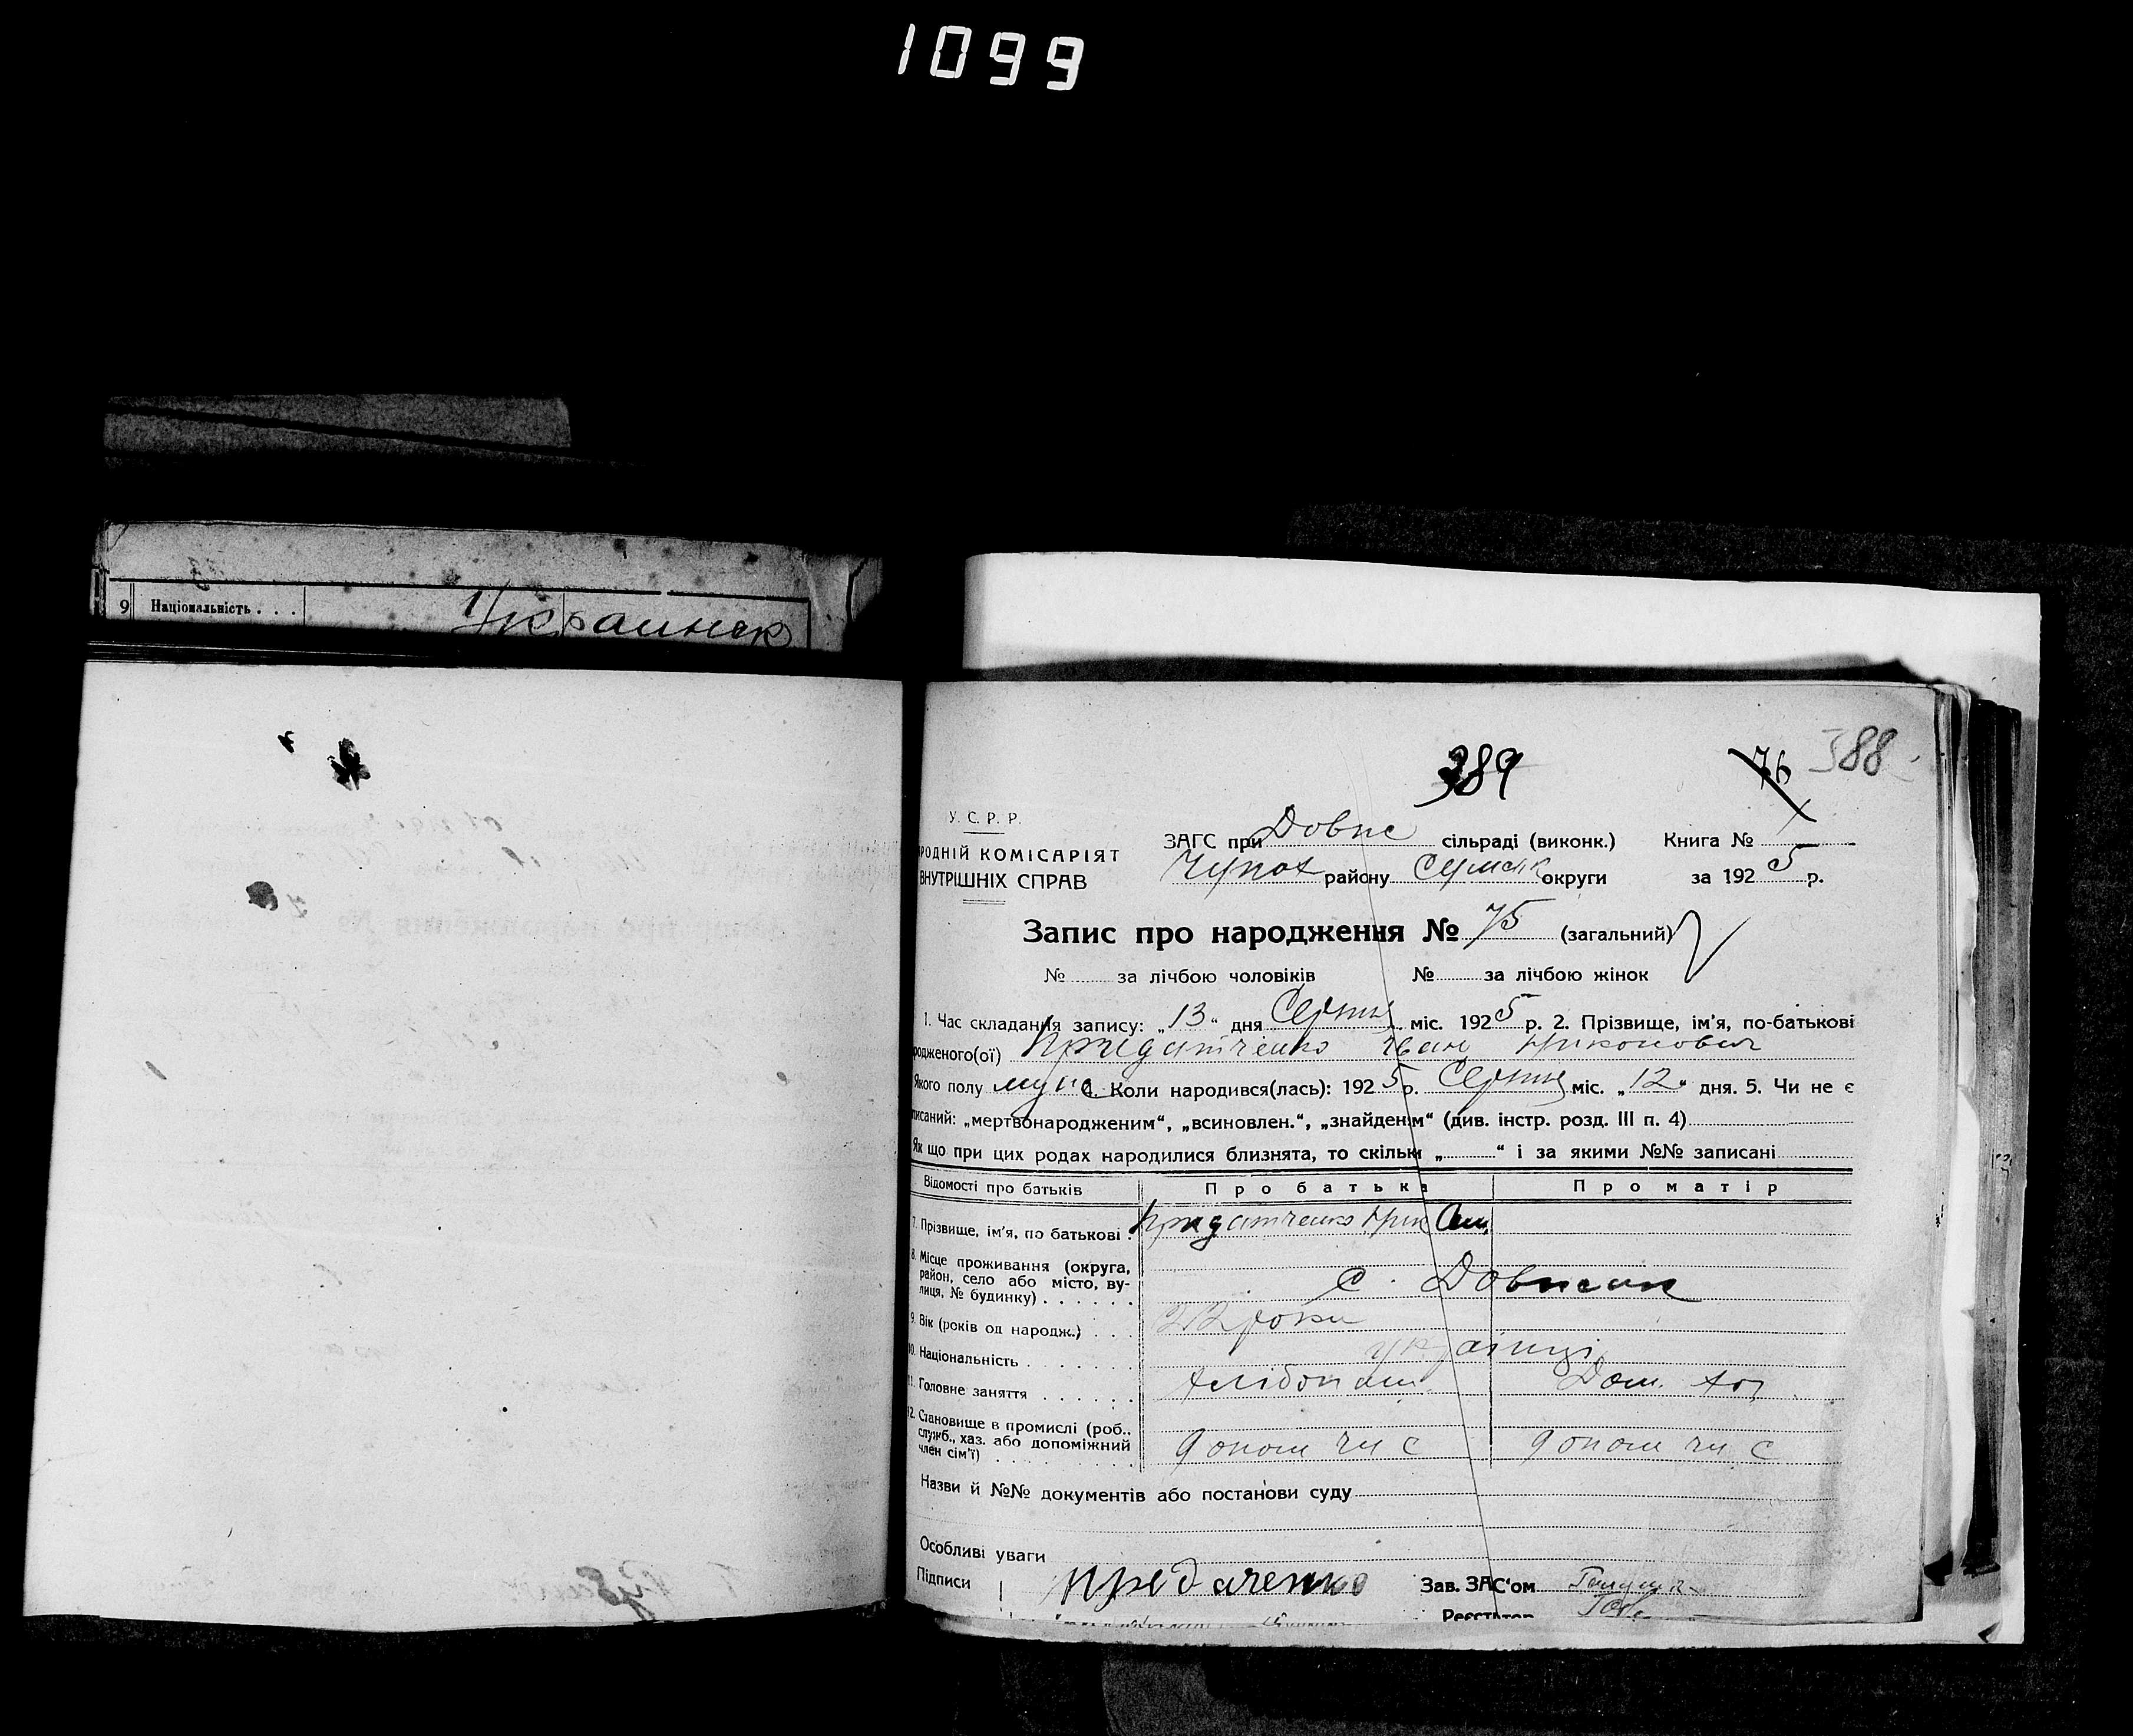 1099
9 Національність . . . Украинск
389
76 388
У. С. Р. Р.
РОДНІЙ КОМІСАРІЯТ
ВНУТРІШНІХ СПРАВ
ЗАГС при Довж сільраді (виконк.) Книга №
Чупах району Сумськ округи за 1925 р.
Запис про народження № 75 (загальний)
№ за лічбою чоловіків № за лічбою жінок
1. Час складання запису: „13“ дня Серпня міс. 1925 р. 2. Прізвище, ім'я, по-батькові
родженого(ої) Придатченко Іван Никонович
Якого полу муж 4. Коли народився(лась): 1925 р. Серпня міс. „12“ дня. 5. Чи не є
писаний: „мертвонародженим“, „всиновлен.“, „знайденім“ (див. інстр. розд. III п. 4)
Як що при цих родах народилися близнята, то скільки „ “ і за якими №№ записані
Відомості про батьків Про батька Про матір
7. Прізвище, ім'я, по батькові . Придатченко Ник
8. Місце проживання (округа,
район, село або місто, ву-
лиця, № будинку) . . . . . . с.
9. Вік (років од народж.) . . . 22 роки
10. Національність . . . . . . . українці
11. Головне заняття . . . . . . хлібопаш. Дом. хоз
12. Становище в промислі (роб.,
служб., хаз. або допоміжний
член сім'ї) . . . . . . . . . допом чл с допом чл с
Назви й №№ документів або постанови суду
Особливі уваги
Підписи Предаченко Зав. ЗАС'ом
Реєстратор